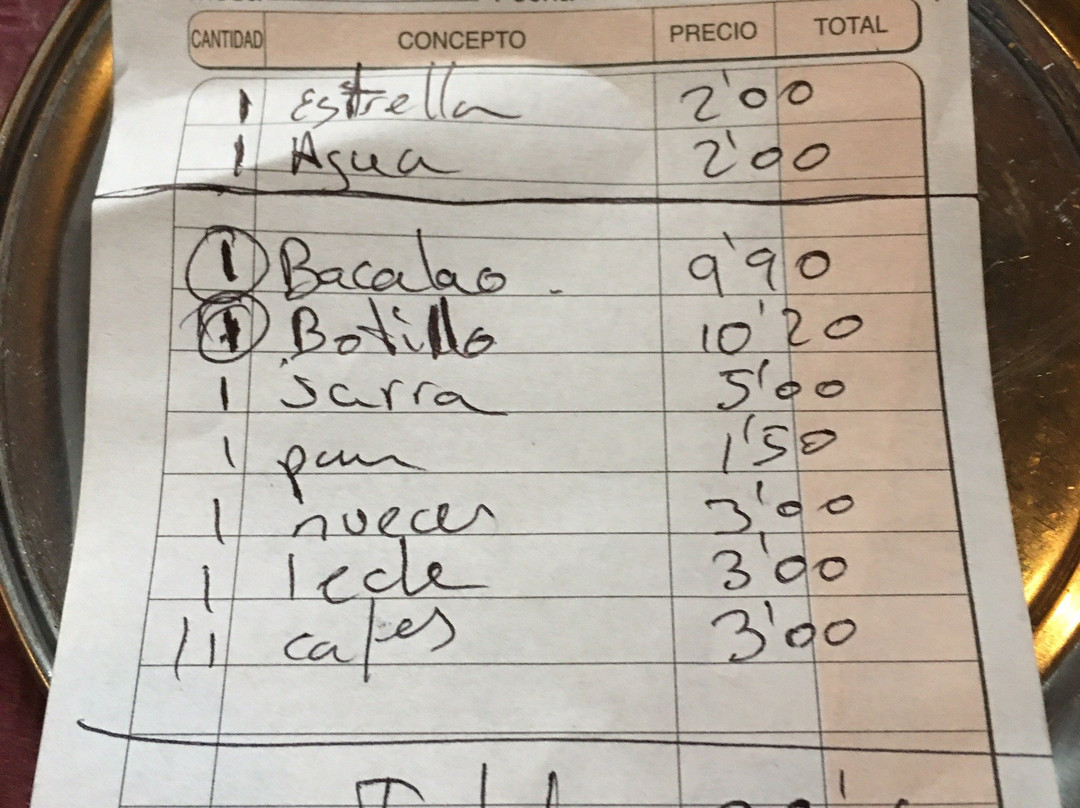 CANTIDAD CONCEPTO PRECIO TOTAL
1 Estrella 2'00
1 Agua 2'00
1 Bacalao 9'90
1 Botillo 10'20
1 Jarra 5'00
1 pan 1'50
1 nueces 3'00
1 leche 3'00
11 cafes 3'00